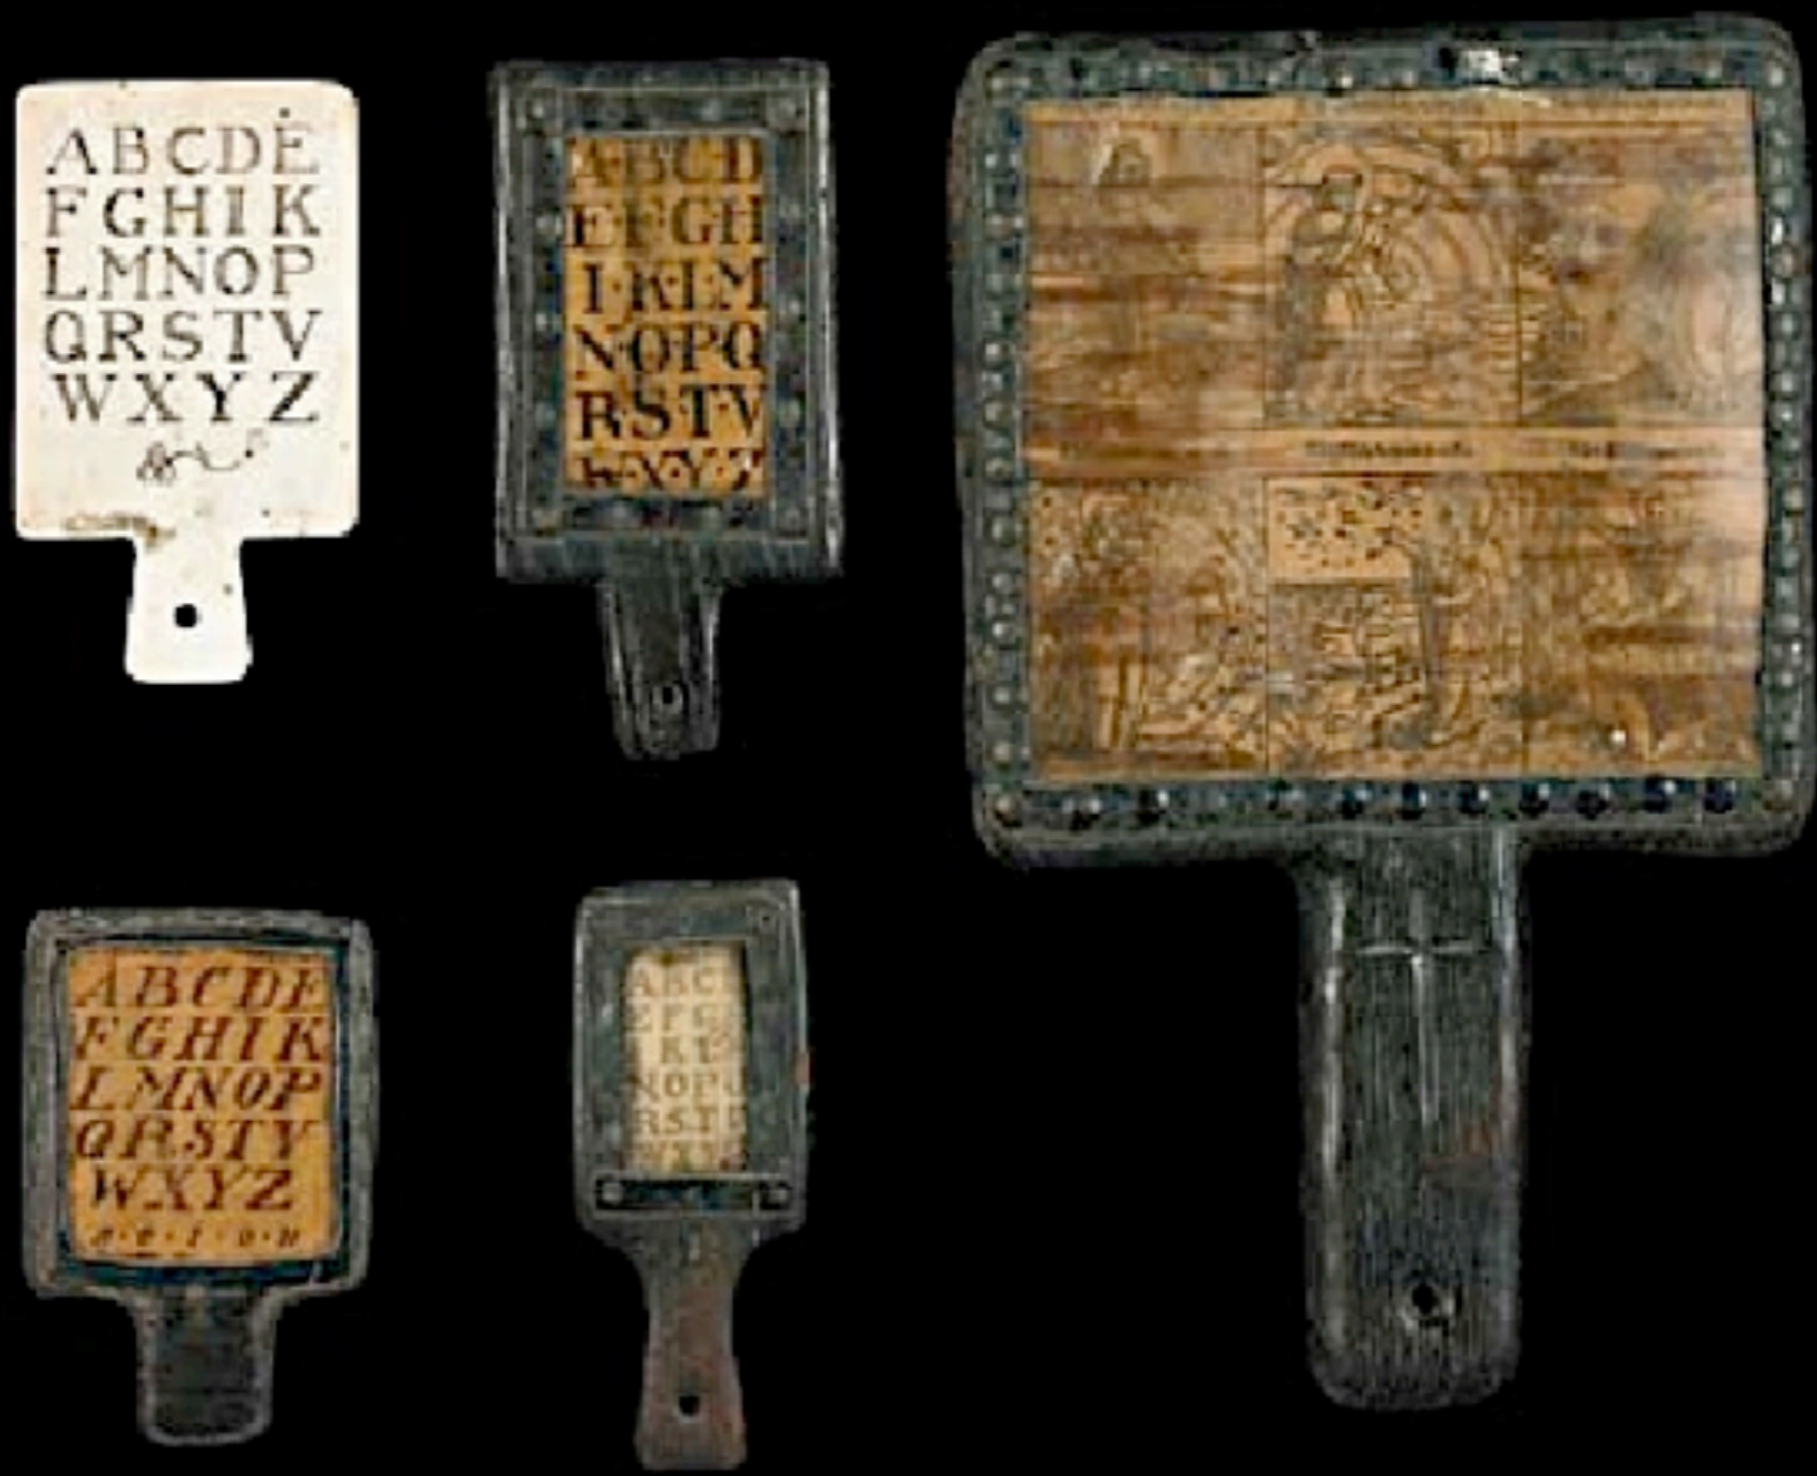 A B C D E
F G H I K
L M N O P
Q R S T V
W X Y Z
A·B·C·D
E·F·G·H
I·K·L·M
N·O·P·Q
R·S·T·V
W·X·Y·Z
A B C D E
F G H I K
L M N O P
Q R S T V
W X Y Z
a·e·i·o·u
A B C
E F G
K L
N O P Q
R S T